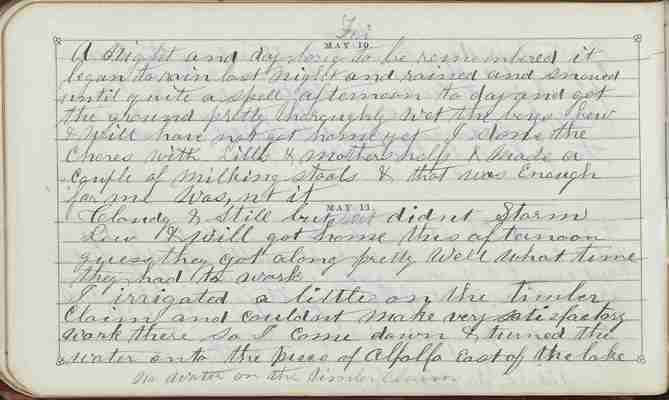 Fri
MAY 10.
A Night and day long to be remembered it
began to rain last night and rained and snowed
until quite a spell afternoon to day and got
the ground pretty thoroughly wet the boys Lew
& Will have not got home yet I done the
Chores with Lills & mothers help & made a
couple of milking stools & that was Enough
for me was,nt it
MAY 11.
Cloudy & Still but didnt Storm
Lew & Will got home this afternoon
guess they got along pretty well what time
they had to work
I irrigated a little on the timber
Claim and couldnt make very satisfactory
work there so I come down & turned the
water onto the piece of Alfalfa East of the lake
no water on the timber claim